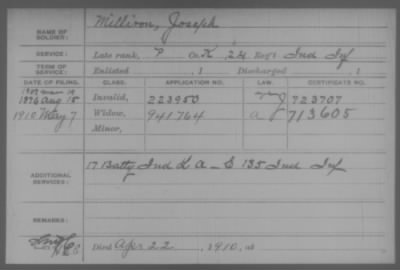 NAME OF SOLDIER: Milliron, Joseph
SERVICE: Late rank, P Co. K, 24 Reg't Ind Inf
TERM OF SERVICE: Enlisted , 1 Discharged , 1
DATE OF FILING. CLASS. APPLICATION NO. LAW. CERTIFICATE NO.
1876 Aug 15 Invalid, 223950 723707
1910 May 7 Widow, 941764 a 713605
Minor,
ADDITIONAL SERVICES: 17 Batty Ind L A - S 135 Ind Inf
REMARKS:
Died Apr 22, 1910, at